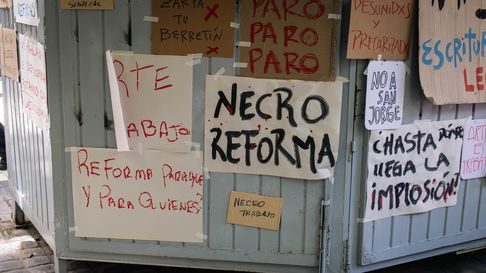 SINDICAL
ZARTA
TU
BERRETÍN
PARO
PARO
PARO
DESUNIDXS
Y
PRECARIZADXS
ESCRITUR
LE
RTE
ABAJO
NECRO
REFORMA
NO A
SAN
JORGE
REFORMA PARA QUE
Y PARA QUIENES?
NECRO
TRABAJO
¿HASTA DÓNDE
LLEGA LA
IMPLOSIÓN?
ES
TRABAJO